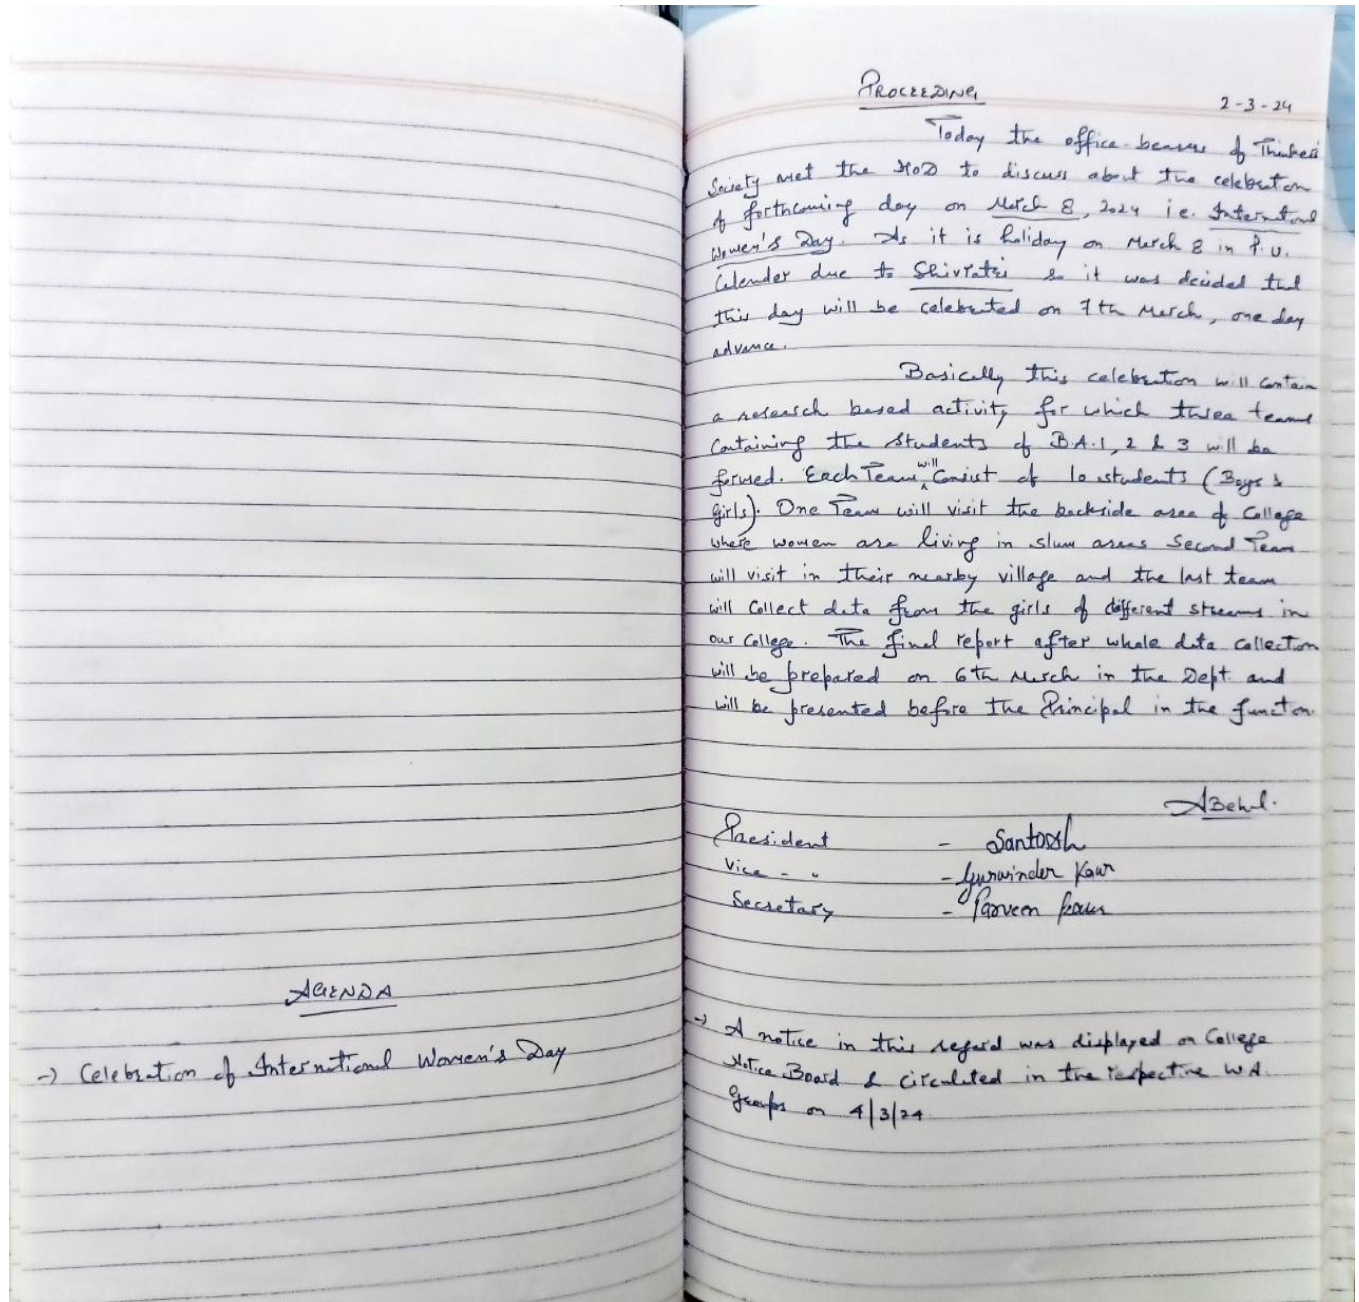 AGENDA
-> Celebration of International Women's Day
PROCEEDING
2-3-24
Today the office bearers of Thinkers
Society met the HOD to discuss about the celebration
of forthcoming day on March 8, 2024 i.e. International
Women's Day. As it is holiday on March 8 in P.U.
Calender due to Shivratri & it was decided that
this day will be celebrated on 7th March, one day
advance.
Basically this celebration will contain
a research based activity for which three teams
containing the students of B.A.1, 2 & 3 will be
formed. Each Team will consist of 10 students (Boys &
girls). One Team will visit the backside area of College
where women are living in slum areas Second Team
will visit in their nearby village and the last team
will collect data from the girls of different streams in
our College. The final report after whole data collection
will be prepared on 6th March in the Dept. and
will be presented before the Principal in the function.
ABehl.
President - Santosh
Vice - " - Gurwinder Kaur
Secretary - Parveen Kaur
-> A notice in this regard was displayed on College
Notice Board & circulated in the respective W.A.
Groups on 4/3/24